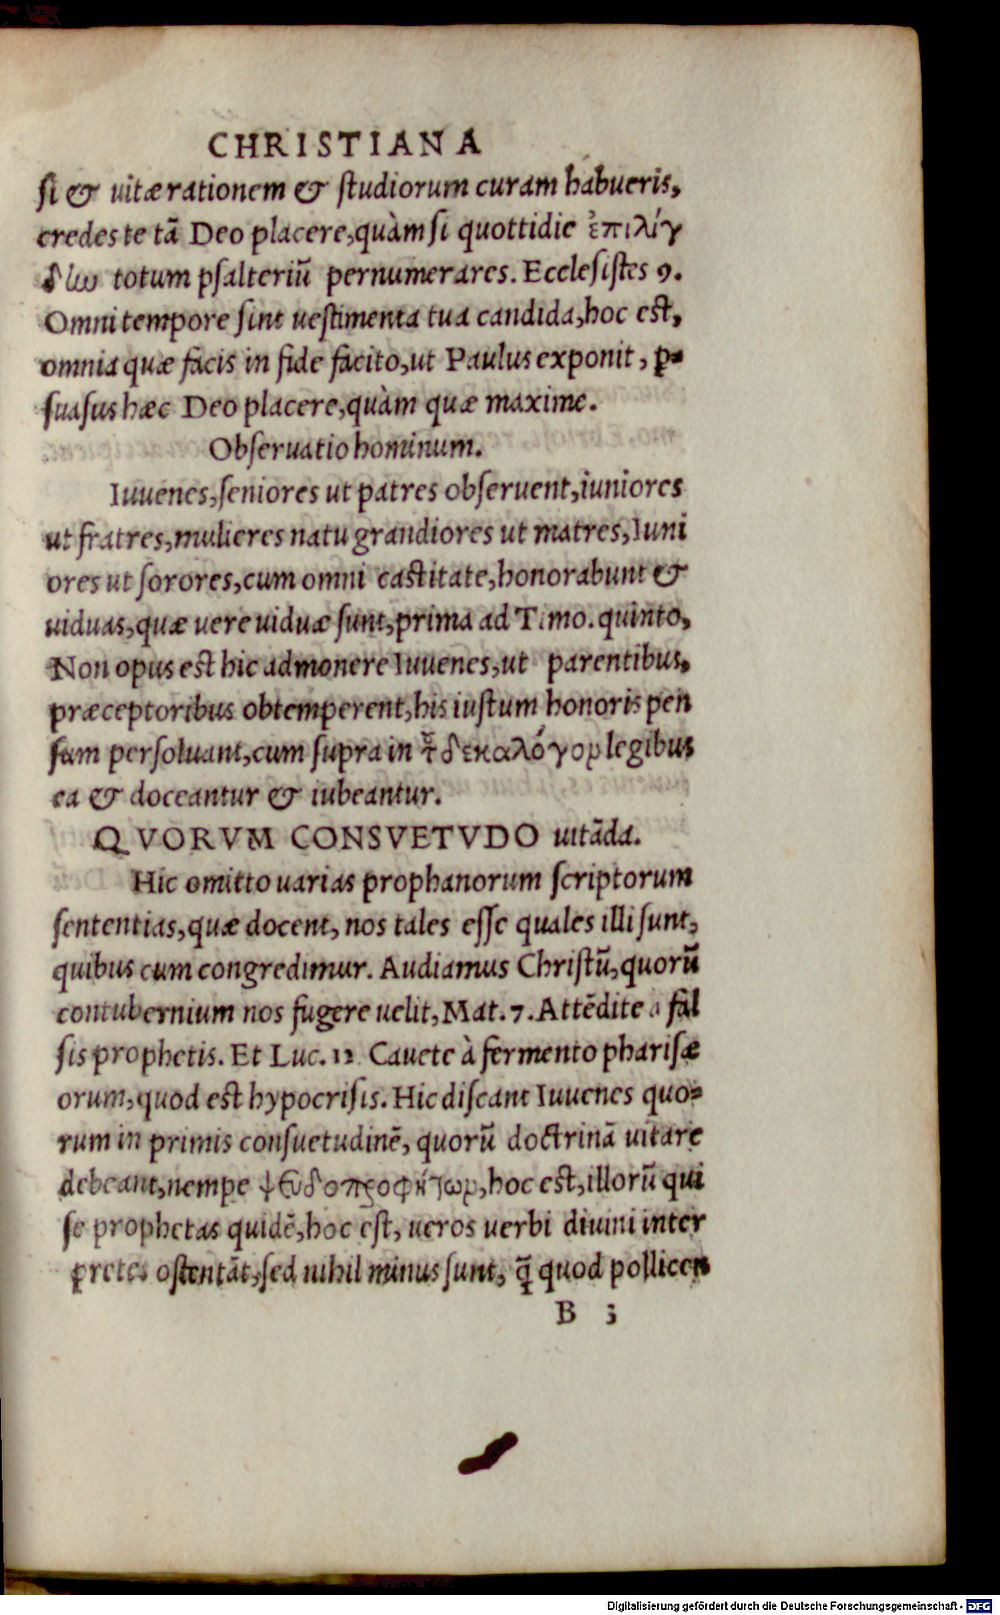 CHRISTIANA
si & uitæ rationem & studiorum curam habueris,
credes te tā Deo placere, quàm si quottidie ἐπιλίγ
δίω totum psalteriū pernumerares. Ecclesistes 9.
Omni tempore sint uestimenta tua candida, hoc est,
omnia quæ facis in fide facito, ut Paulus exponit, ꝑ-
suasus hæc Deo placere, quàm quæ maxime.
Obseruatio hominum.
Iuuenes, seniores ut patres obseruent, iuniores
ut fratres, mulieres natu grandiores ut matres, Iuni
ores ut sorores, cum omni castitate, honorabunt &
uiduas, quæ uere uiduæ sunt, prima ad Timo. quinto,
Non opus est hic admonere Iuuenes, ut parentibus,
præceptoribus obtemperent, his iustum honoris pen
sum persoluant, cum supra in δεκαλόγορ legibus
ea & doceantur & iubeantur.
QVORVM CONSVETVDO uitāda.
Hic omitto uarias prophanorum scriptorum
sententias, quæ docent, nos tales esse quales illi sunt,
quibus cum congredimur. Audiamus Christū, quorū
contubernium nos fugere uelit, Mat. 7. Attēdite a fal
sis prophetis. Et Luc. 12 Cauete à fermento pharisæ
orum, quod est hypocrisis. Hic discant Iuuenes quo-
rum in primis consuetudinē, quorū doctrinā uitare
debeant, nempe ψευδοπροφήτωρ, hoc est, illorū qui
se prophetas quidē, hoc est, ueros uerbi diuini inter
pretes ostentāt, sed nihil minus sunt, q̄ quod pollicen
B 3
Digitalisierung gefördert durch die Deutsche Forschungsgemeinschaft - DFG